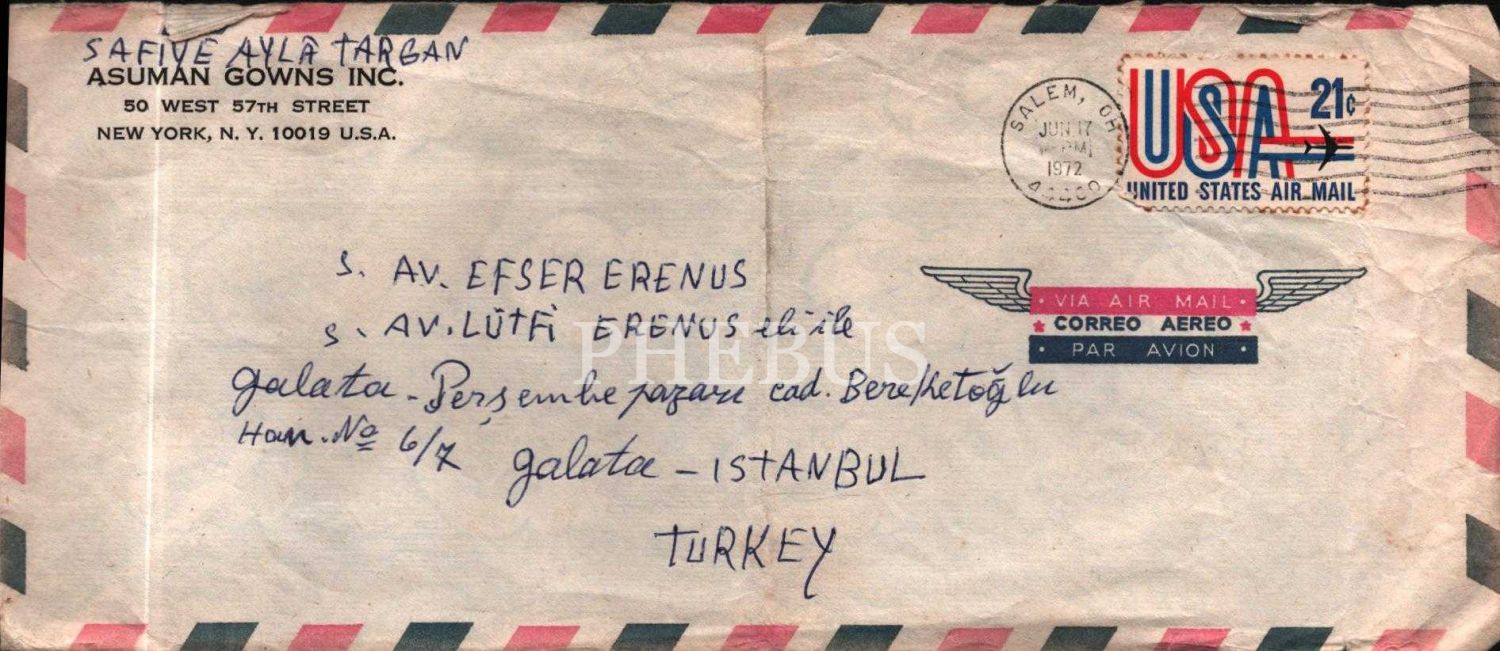 SAFİYE AYLÂ TARGAN
ASUMAN GOWNS INC.
50 WEST 57TH STREET
NEW YORK, N. Y. 10019 U.S.A.
SALEM, OH
JUN 17
PM
1972
44460
USA 21c
UNITED STATES AIR MAIL
S. AV. EFSER ERENUS
S. AV. LÛTFİ ERENUS eli ile
VIA AIR MAIL
CORREO AEREO
PAR AVION
PHEBUS
Galata - Perşembe pazarı cad. Bereketoğlu
Han. No 6/7
Galata - ISTANBUL
TURKEY